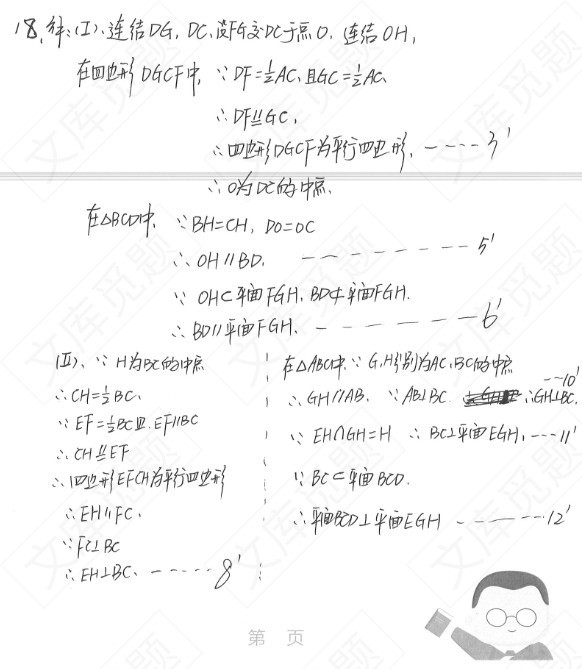 18.解:(I).连结DG, DC.设FG交DC于点O. 连结OH,
在四边形DGCF中, ∵DF=½AC,且GC=½AC,
∴DF⫽GC,
∴四边形DGCF为平行四边形. ---- 3'
∴O为DC的中点.
在△BCD中, ∵BH=CH, DO=OC
∴OH∥BD. ---------- 5'
∵OH⊂平面FGH, BD⊄平面FGH.
∴BD∥平面FGH. -------- 6'
(Ⅱ). ∵H为BC的中点
∴CH=½BC.
∵EF=½BC且.EF∥BC
∴CH⫽EF
∴四边形EFCH为平行四边形
∴EH∥FC.
∵FC⊥BC
∴EH⊥BC. ----- 8'
在△ABC中∵G,H分别为AC,BC的中点
∴GH∥AB. ∵AB⊥BC. ∴GH⊥BC. --10'
∵EH∩GH=H ∴BC⊥平面EGH. --- 11'
∵BC⊂平面BCD.
∴平面BCD⊥平面EGH ------ 12'
第 页
文库觅题